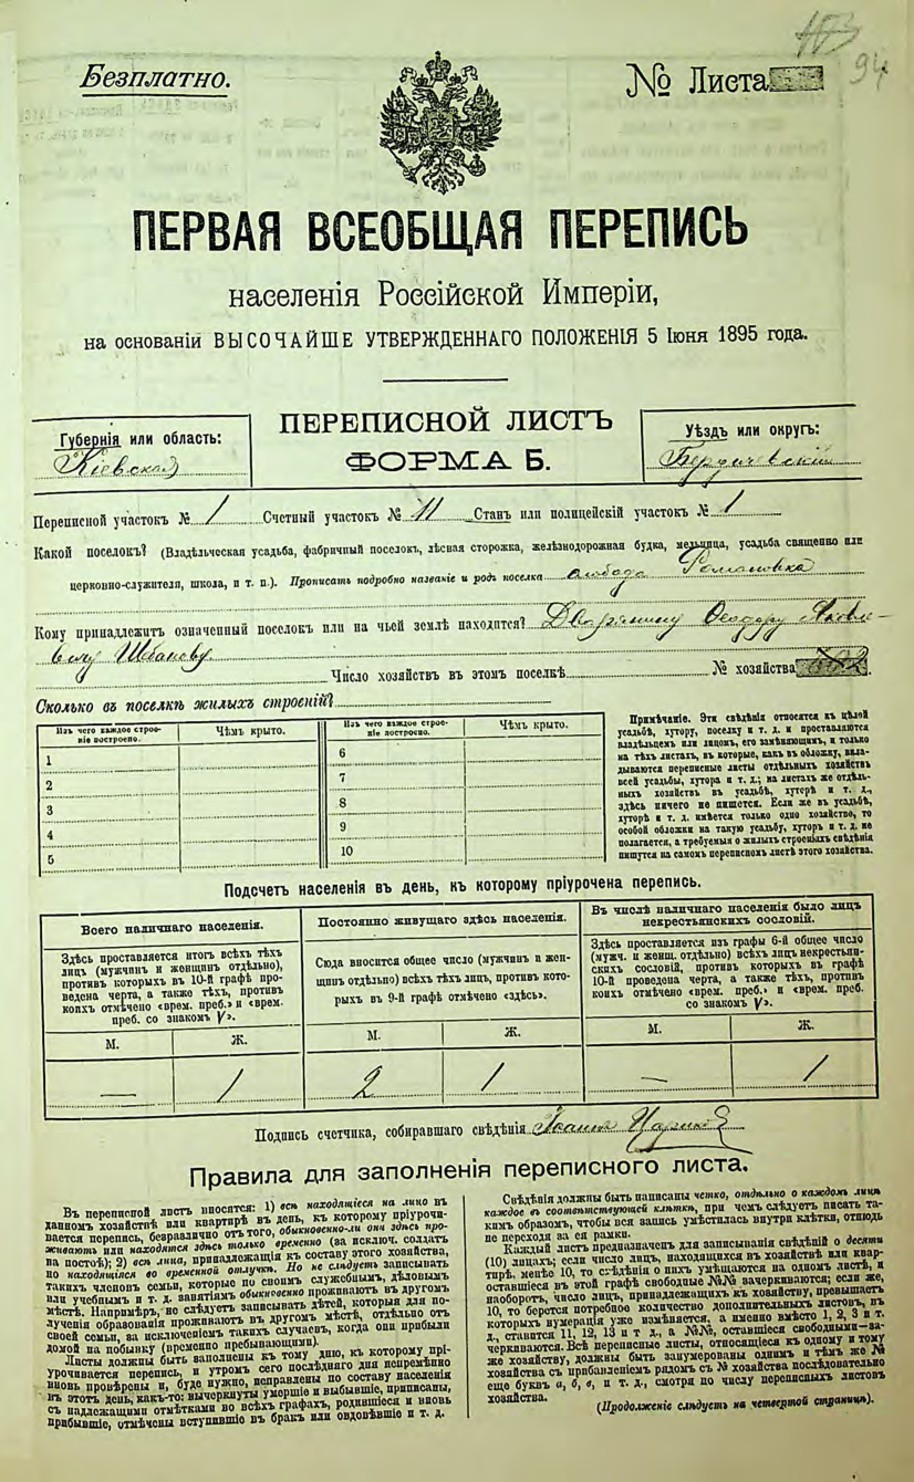 94
Безплатно.
№ Листа
ПЕРВАЯ ВСЕОБЩАЯ ПЕРЕПИСЬ
населенія Россійской Имперіи,
на основаніи ВЫСОЧАЙШЕ УТВЕРЖДЕННАГО ПОЛОЖЕНІЯ 5 Іюня 1895 года.
Губернія или область:
Кіевская
ПЕРЕПИСНОЙ ЛИСТЪ
ФОРМА Б.
Уѣздъ или округъ:
Бердичевскій
Переписной участокъ № 1 Счетный участокъ № 11 Станъ или полицейскій участокъ № 1
Какой поселокъ? (Владѣльческая усадьба, фабричный поселокъ, лѣсная сторожка, желѣзнодорожная будка, мельница, усадьба священно или
церковно-служителя, школа, и т. п.). Прописать подробно названіе и родъ поселка слобода Романовка
Кому принадлежитъ означенный поселокъ или на чьей землѣ находится? Дворянину Ѳеодору
Число хозяйствъ въ этомъ поселкѣ № хозяйства
Сколько въ поселкѣ жилыхъ строеній?
Изъ чего каждое строе-
ніе построено.
Чѣмъ крыто.
Изъ чего каждое строе-
ніе построено.
Чѣмъ крыто.
1
2
3
4
5
6
7
8
9
10
Примѣчаніе. Эти свѣдѣнія относятся къ цѣлой
усадьбѣ, хутору, поселку и т. д. и проставляются
владѣльцемъ или лицомъ, его замѣняющимъ, и только
на тѣхъ листахъ, въ которые, какъ въ обложку, вкла-
дываются переписные листы отдѣльныхъ хозяйствъ
всей усадьбы, хутора и т. д.; на листахъ же отдѣль-
ныхъ хозяйствъ въ усадьбѣ, хуторѣ и т. д.,
здѣсь ничего не пишется. Если же въ усадьбѣ,
хуторѣ и т. д. имѣется только одно хозяйство, то
особой обложки на такую усадьбу, хуторъ и т. д. не
полагается, а требуемыя о жилыхъ строеніяхъ свѣдѣнія
пишутся на самомъ переписномъ листѣ этого хозяйства.
Подсчетъ населенія въ день, къ которому пріурочена перепись.
Всего наличнаго населенія.
Здѣсь проставляется итогъ всѣхъ тѣхъ
лицъ (мужчинъ и женщинъ отдѣльно),
противъ которыхъ въ 10-й графѣ про-
ведена черта, а также тѣхъ, противъ
коихъ отмѣчено «врем. преб.» и «врем.
преб. со знакомъ V».
М. Ж.
— 1
Постоянно живущаго здѣсь населенія.
Сюда вносится общее число (мужчинъ и жен-
щинъ отдѣльно) всѣхъ тѣхъ лицъ, противъ кото-
рыхъ въ 9-й графѣ отмѣчено «здѣсь».
М. Ж.
2 1
Въ числѣ наличнаго населенія было лицъ
некрестьянскихъ сословій.
Здѣсь проставляется изъ графы 6-й общее число
(мужч. и женщ. отдѣльно) всѣхъ лицъ некрестьян-
скихъ сословій, противъ которыхъ въ графѣ
10-й проведена черта, а также тѣхъ, противъ
коихъ отмѣчено «врем. преб.» и «врем. преб.
со знакомъ V».
М. Ж.
— 1
Подпись счетчика, собиравшаго свѣдѣнія
Правила для заполненія переписного листа.
Въ переписной листъ вносятся: 1) всѣ находящіеся на лицо въ
данномъ хозяйствѣ или квартирѣ въ день, къ которому пріурочи-
вается перепись, безразлично отъ того, обыкновенно-ли они здѣсь про-
живаютъ или находятся здѣсь только временно (за исключ. солдатъ
на постоѣ); 2) всѣ лица, принадлежащія къ составу этого хозяйства,
но находящіяся во временной отлучкѣ. Но не слѣдуетъ записывать
такихъ членовъ семьи, которые по своимъ служебнымъ, дѣловымъ
или учебнымъ и т. д. занятіямъ обыкновенно проживаютъ въ другомъ
мѣстѣ. Напримѣръ, не слѣдуетъ записывать дѣтей, которыя для по-
лученія образованія проживаютъ въ другомъ мѣстѣ, отдѣльно отъ
своей семьи, за исключеніемъ такихъ случаевъ, когда они прибыли
домой на побывку (временно пребывающими).
Листы должны быть заполнены къ тому дню, къ которому прі-
урочивается перепись, и утромъ сего послѣдняго дня непремѣнно
вновь провѣрены и, буде нужно, исправлены по составу населенія
въ этотъ день, какъ-то: вычеркнуты умершіе и выбывшіе, приписаны,
съ надлежащими отмѣтками во всѣхъ графахъ, родившіеся и вновь
прибывшіе, отмѣчены вступившіе въ бракъ или овдовѣвшіе и т. д.
Свѣдѣнія должны быть написаны четко, отдѣльно о каждомъ лицѣ
каждое въ соотвѣтствующей клѣткѣ, при чемъ слѣдуетъ писать та-
кимъ образомъ, чтобы вся запись умѣстилась внутри клѣтки, отнюдь
не переходя за ея рамки.
Каждый листъ предназначенъ для записыванія свѣдѣній о десяти
(10) лицахъ; если число лицъ, находящихся въ хозяйствѣ или квар-
тирѣ, менѣе 10, то свѣдѣнія о нихъ умѣщаются на одномъ листѣ, и
оставшіеся въ этой графѣ свободные №№ зачеркиваются; если же,
наоборотъ, число лицъ, принадлежащихъ къ хозяйству, превышаетъ
10, то берется потребное количество дополнительныхъ листовъ, въ
которыхъ нумерація уже измѣняется, а именно вмѣсто 1, 2, 3 и т.
д., ставится 11, 12, 13 и т. д., а №№, оставшіеся свободными—за-
черкиваются. Всѣ переписные листы, относящіеся къ одному и тому
же хозяйству, должны быть занумерованы однимъ и тѣмъ же №
хозяйства съ прибавленіемъ рядомъ съ № хозяйства послѣдовательно
еще буквъ а, б, в, и т. д., смотря по числу переписныхъ листовъ
хозяйства.
(Продолженіе слѣдуетъ на четвертой страницѣ).